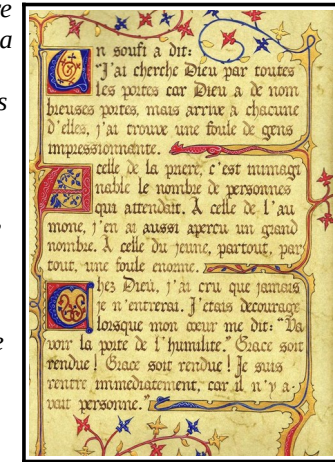 re
a
s
,
e
Un soufi a dit:
"J'ai cherche Dieu par toutes
les portes car Dieu a de nom
breuses portes, mais arrive a chacune
d'elles, j'ai trouve une foule de gens
impressionnante.
A celle de la priere, c'est inimagi
nable le nombre de personnes
qui attendait. A celle de l'au
mone, j'en ai aussi apercu un grand
nombre. A celle du jeune, partout, par
tout, une foule enorme.
Chez Dieu, j'ai cru que jamais
je n'entrerai. J'etais decourage
lorsque mon cœur me dit: "Va
voir la porte de l'humilite." Grace soit
rendue ! Grace soit rendue ! Je suis
rentre immediatement, car il n'y a-
vait personne."